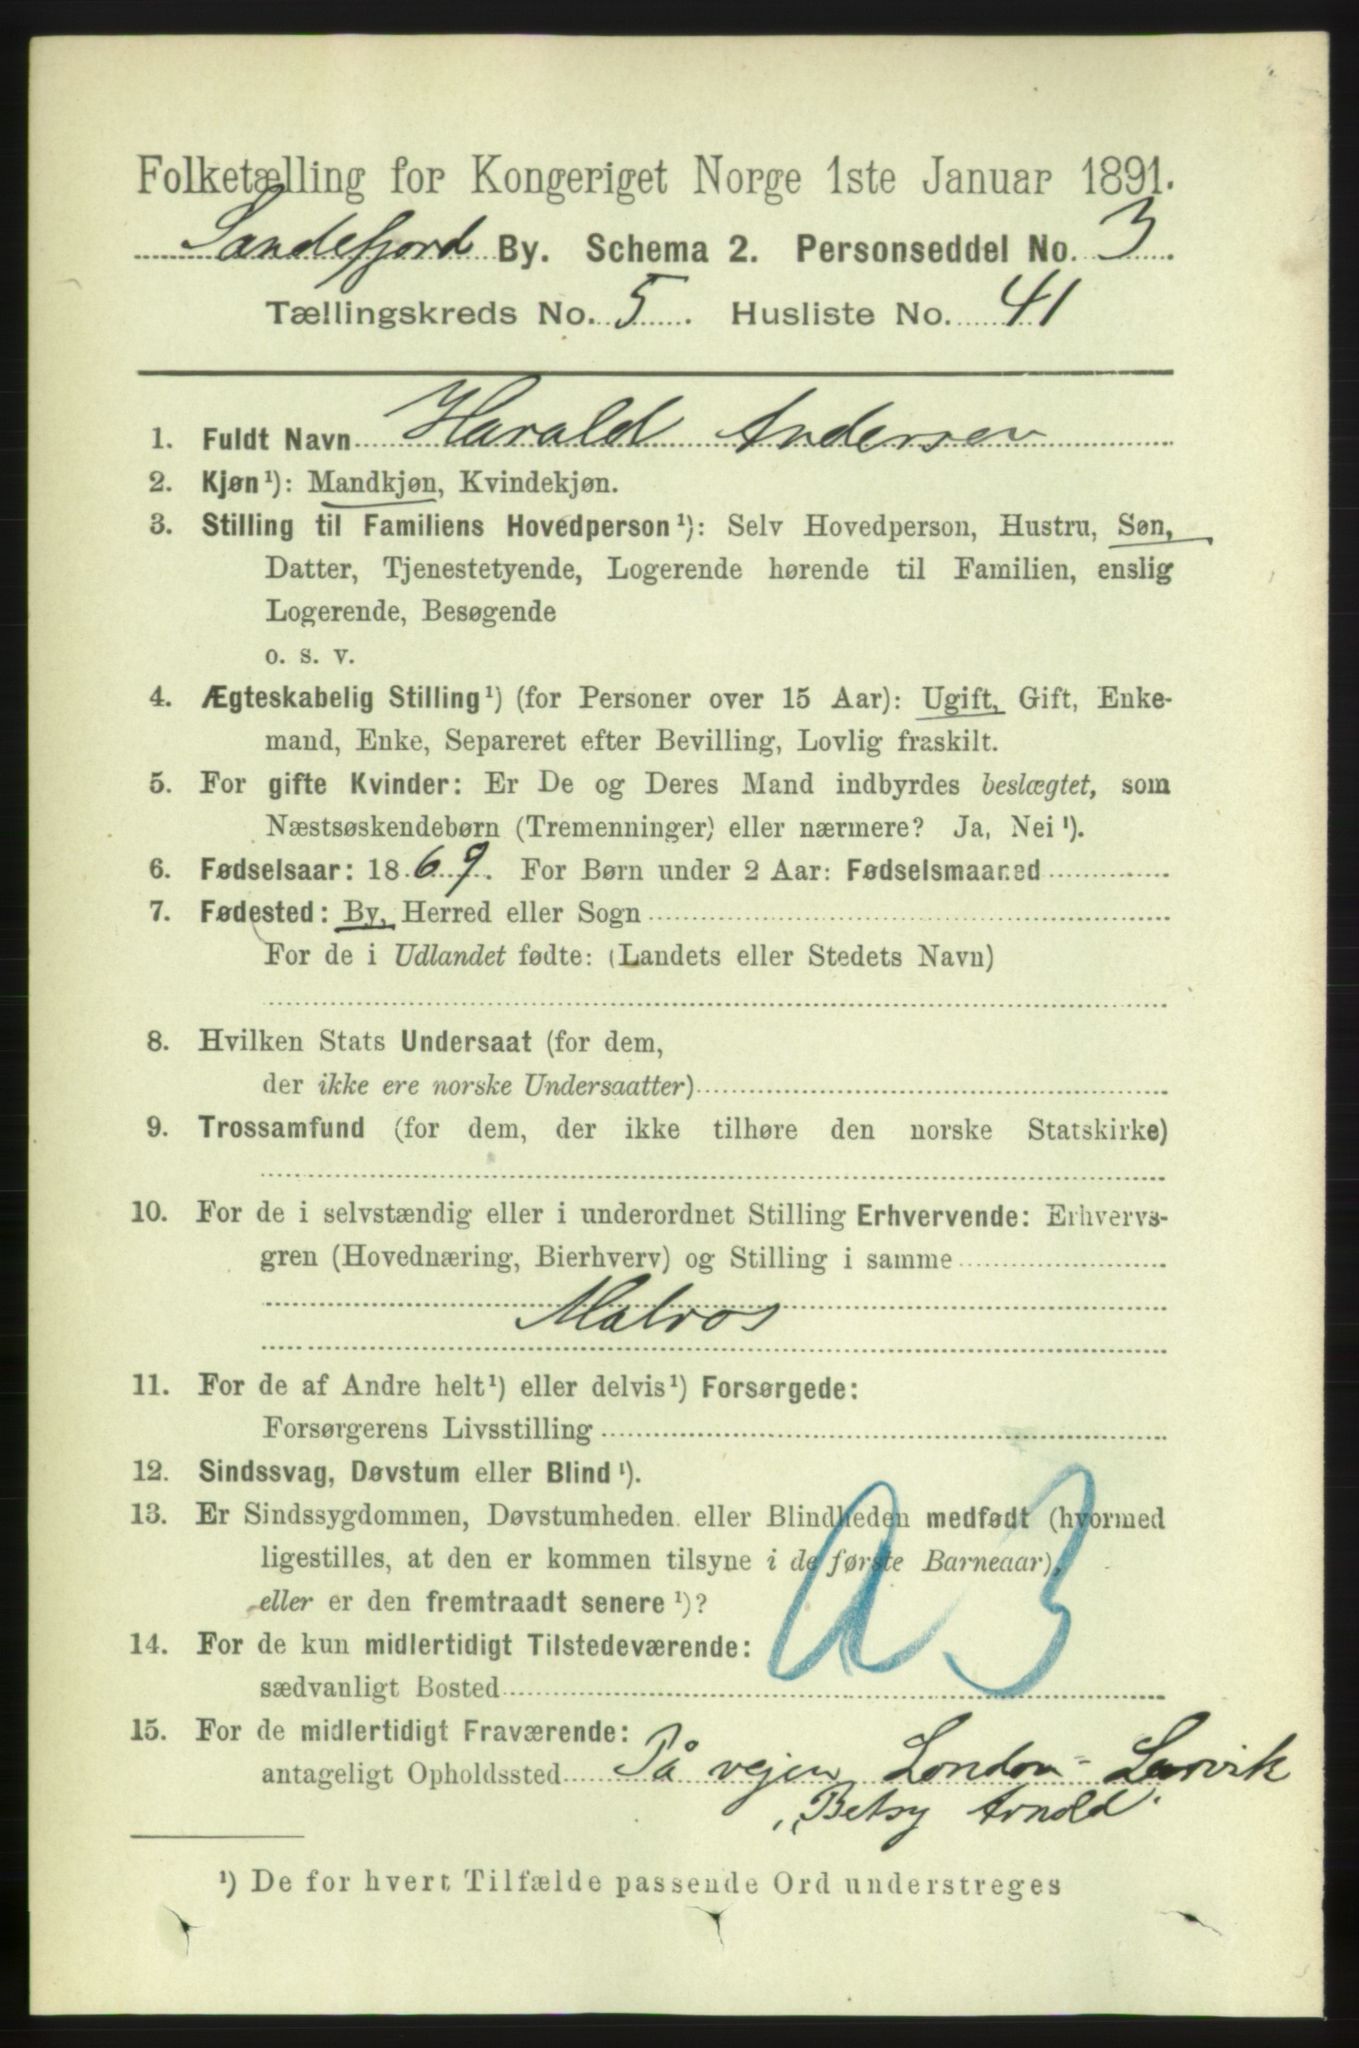 Folketælling for Kongeriget Norge 1ste Januar 1891.
Sandefjord By. Schema 2. Personseddel No. 3
Tællingskreds No. 5. Husliste No. 41
1. Fuldt Navn Harald Andersen
2. Kjøn¹): Mandkjøn, Kvindekjøn.
3. Stilling til Familiens Hovedperson¹): Selv Hovedperson, Hustru, Søn,
Datter, Tjenestetyende, Logerende hørende til Familien, enslig
Logerende, Besøgende
o. s. v.
4. Ægteskabelig Stilling¹) (for Personer over 15 Aar): Ugift, Gift, Enke-
mand, Enke, Separeret efter Bevilling, Lovlig fraskilt.
5. For gifte Kvinder: Er De og Deres Mand indbyrdes beslægtet, som
Næstsøskendebørn (Tremenninger) eller nærmere? Ja, Nei¹).
6. Fødselsaar: 1869. For Børn under 2 Aar: Fødselsmaaned
7. Fødested: By, Herred eller Sogn
For de i Udlandet fødte: (Landets eller Stedets Navn)
8. Hvilken Stats Undersaat (for dem,
der ikke ere norske Undersaatter)
9. Trossamfund (for dem, der ikke tilhøre den norske Statskirke)
10. For de i selvstændig eller i underordnet Stilling Erhvervende: Erhvervs-
gren (Hovednæring, Bierhverv) og Stilling i samme
Matros
11. For de af Andre helt¹) eller delvis¹) Forsørgede:
Forsørgerens Livsstilling
12. Sindssvag, Døvstum eller Blind¹).
13. Er Sindssygdommen, Døvstumheden eller Blindheden medfødt (hvormed
ligestilles, at den er kommen tilsyne i de første Barneaar),
eller er den fremtraadt senere¹)?
14. For de kun midlertidigt Tilstedeværende:
sædvanligt Bosted
15. For de midlertidigt Fraværende:
antageligt Opholdssted På vejen London - Larvik
"Betsy Arnold"
¹) De for hvert Tilfælde passende Ord understreges